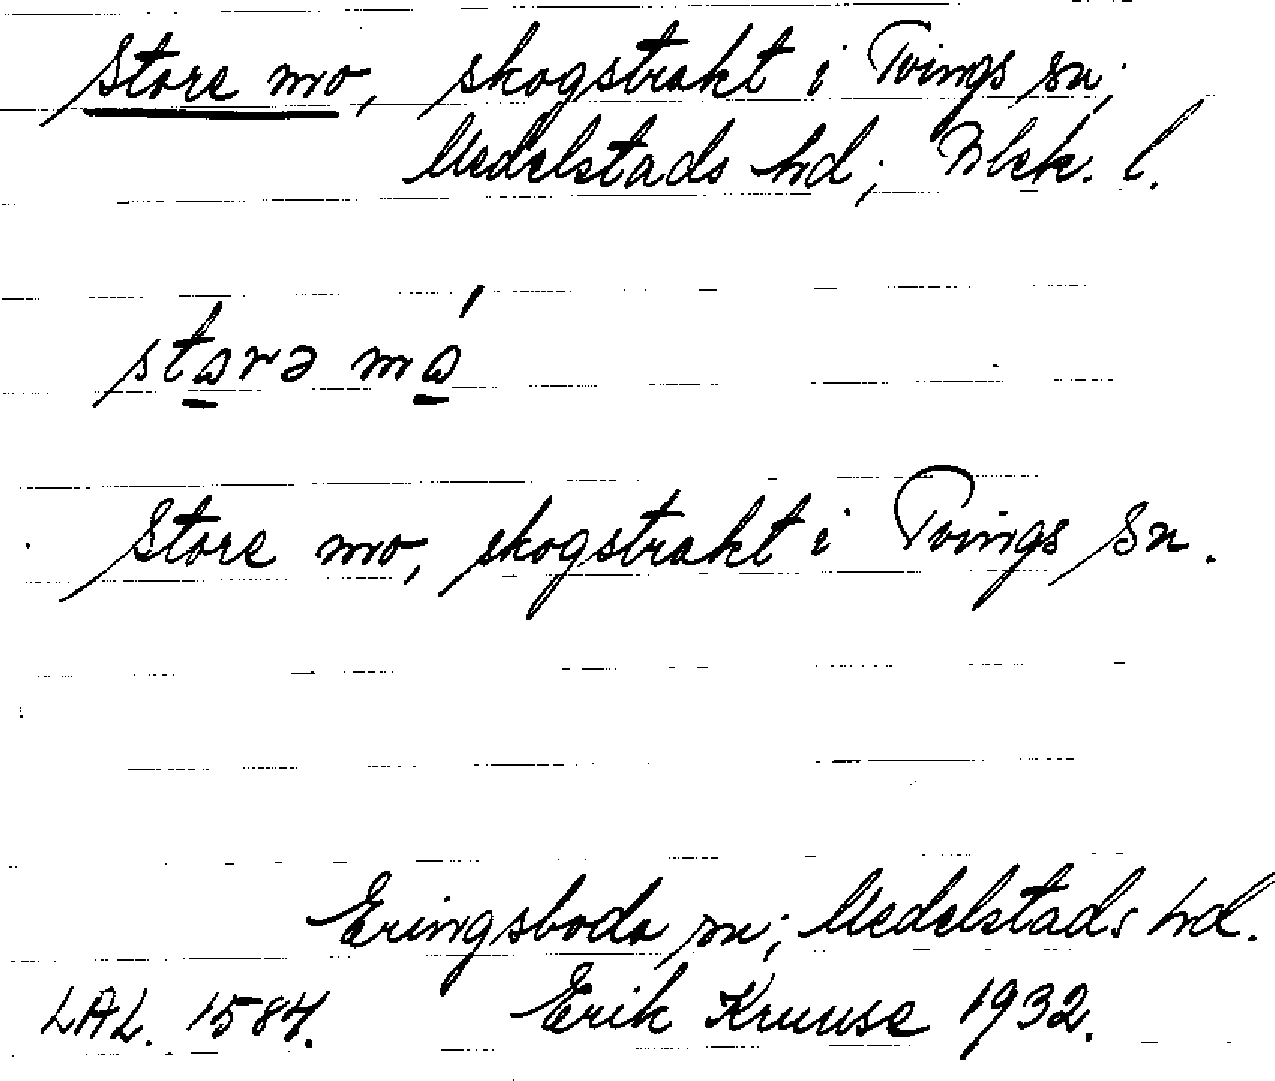 Store mo, skogstrakt i Tvings sn;
Medelstads hd; Blek. l.
stɷ̠rə mɷ̠́
Store mo, skogstrakt i Tvings Sn.
Eringsboda sn; Medelstads hd.
LAL. 1584. Erik Kruuse 1932.